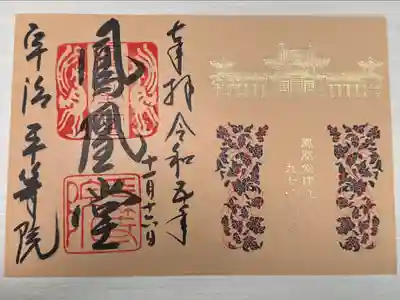 鳳凰堂
九七
奉拝 令和五年
十一月十六日
鳳凰堂
宇治平等院